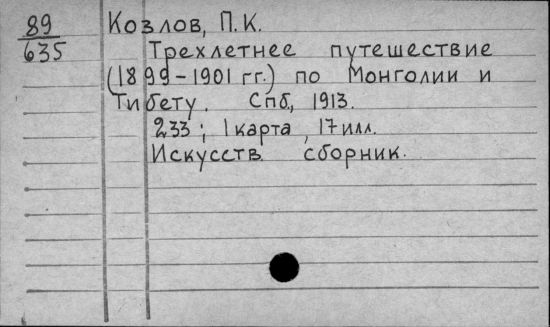 89 Козлов, П.К.
635 Трехлетнее путешествие
(1899-1901 гг.) по Монголии и
Тибету. Спб, 1913.
233 ; 1 карта , 17 илл.
Искусств. сборник.